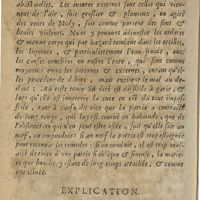 abastardies. Les internes externes sont celles qui vien-
nent de l'air, soit grossier & pluuieux, ou agité
des vents de Midy, soit comme portent des sons &
bruits violents. Nous y pouuons adiouster les ordures
& menus corps qui par hazard tombent dans les oreilles,
les legumes, & particulierement l'eau froide, auec
les causes conceües en nostre Texte, que sont comme
moyennes entre les internes & externes, entant qu'el-
les procedent du dehors, mais excitent le mal au de-
dans: Au reste toute Surdité est difficile à garir, &
lors qu'elle est inueterée la cure en est du tout impos-
sible, tant à cause du vice que la partie a contracté
de long temps, qui luy est tourné en habitude, que de
l'obstruction qui n'en peut estre ostée, soit qu'elle soit au
nerf, ou au conduit: si au nerf la petitesse repugne
pour receuoir les remedes: si au conduit, il est trop mal-
aisé de tirer d'vne partie si oblique & sinueuse, la matie-
re qui bouche, y estant de long temps attachée, & comme
EXPLICATION.